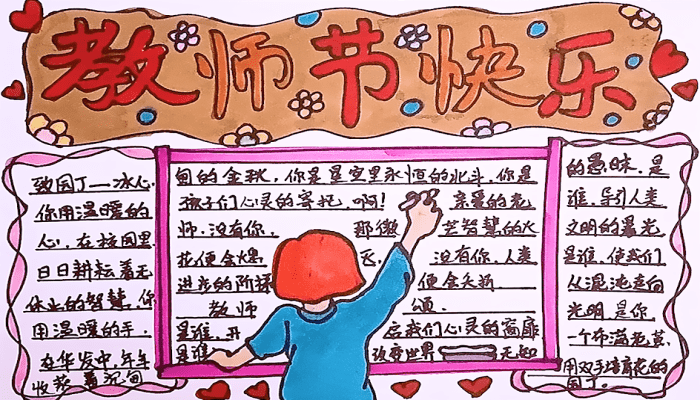 教师节快乐
致园丁——冰心.
你用温暖的
心,在校园里
日日耕耘着无
休止的智慧,你
用温暖的手,
在华发中,年年
收获着沉甸
甸的金秋,你是星空里永恒的北斗,你是
孩子们心灵的寄托,啊! 亲爱的老
师,没有你, 那微 芒智慧的火
花便会熄 没有你,人类
进步的阶梯 便会失
教师 颂.
是谁,开 启我们心灵的窗扉
是谁 改变世界 无知
的愚昧,是
谁,导引人类
文明的曙光,
是谁,使我们
从混沌走向
光明,是你,
一个布满老茧,
用双手培育花的
园丁.